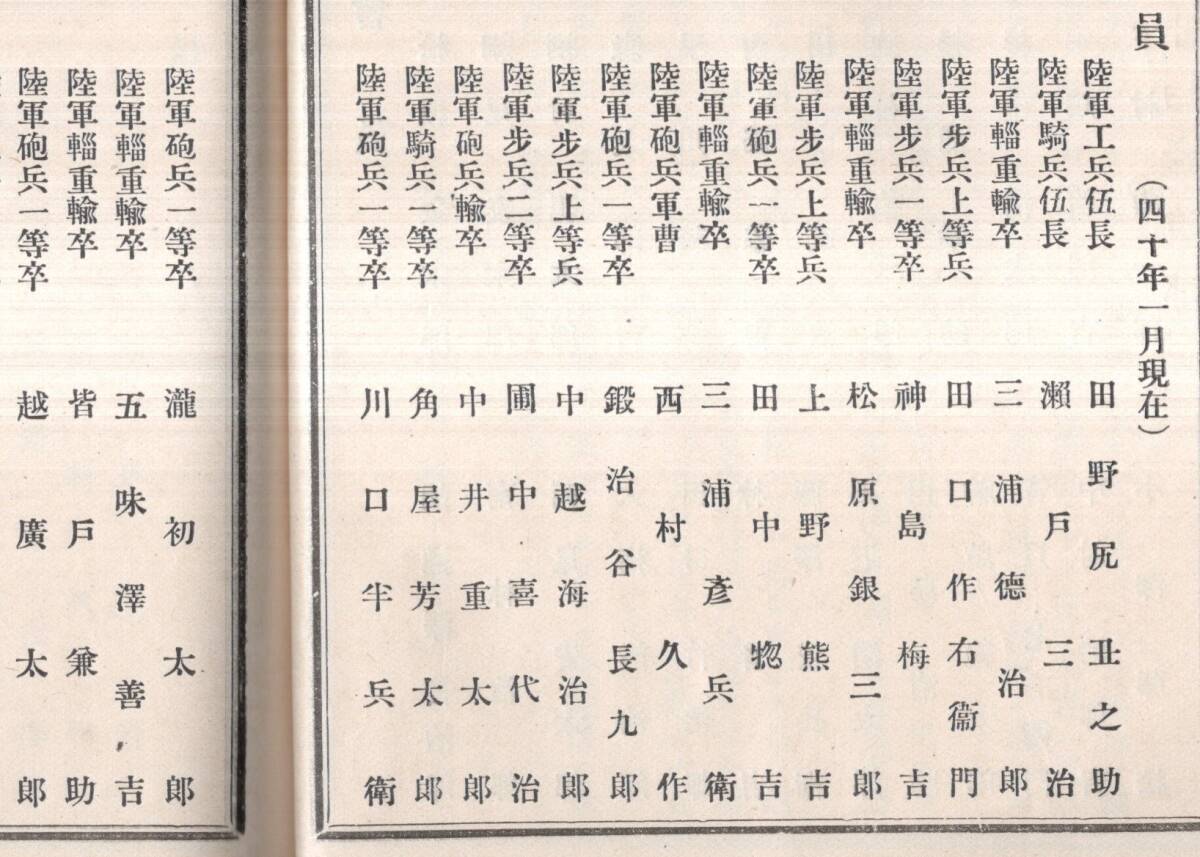 員
(四十年一月現在)
陸軍工兵伍長 田野尻丑之助
陸軍騎兵伍長 瀨戶三治
陸軍輜重輸卒 三浦德治郎
陸軍步兵上等兵 田口作右衞門
陸軍步兵一等卒 神島梅吉
陸軍輜重輸卒 松原銀三郎
陸軍步兵上等兵 上野熊吉
陸軍砲兵一等卒 田中惣吉
陸軍輜重輸卒 三浦彥兵衛
陸軍砲兵軍曹 西村久作
陸軍砲兵一等卒 鍛治谷長九郎
陸軍步兵上等兵 中越海治郎
陸軍步兵二等卒 圃中喜代治
陸軍砲兵輸卒 中井重太郎
陸軍騎兵一等卒 角屋芳太郎
陸軍砲兵一等卒 川口半兵衛
陸軍砲兵一等卒 瀧初太郎
陸軍輜重輸卒 五味澤善吉
陸軍輜重輸卒 皆戶兼助
陸軍砲兵一等卒 越廣太郎